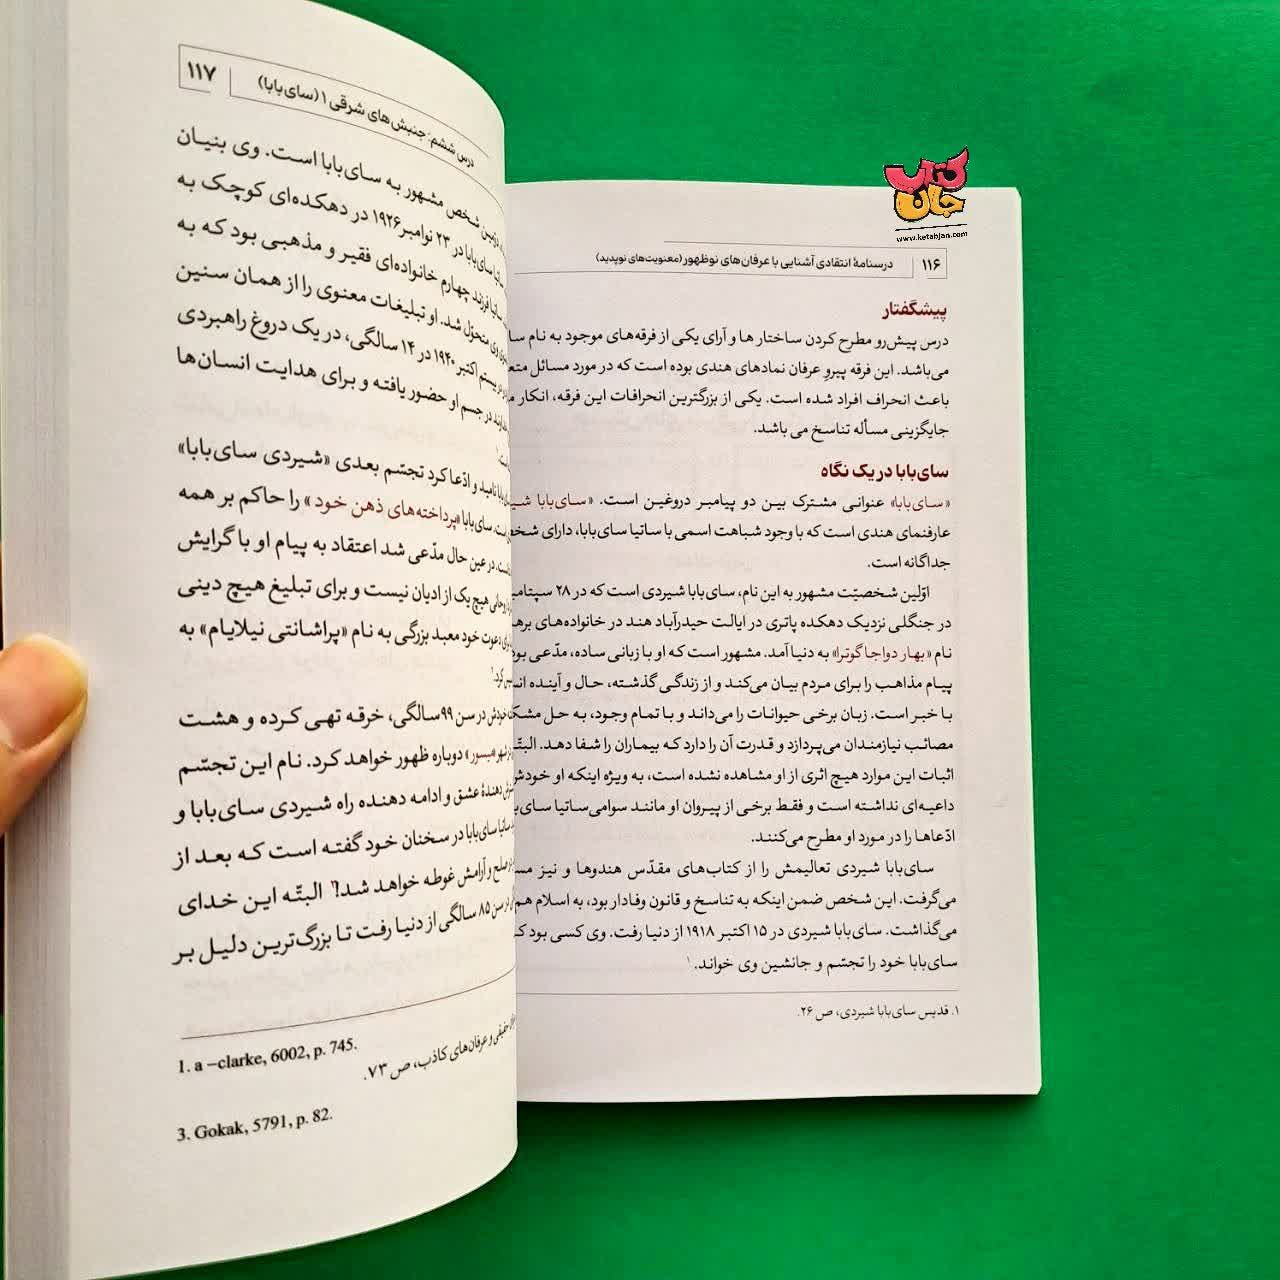 کتاب جان
www.ketabjan.com
۱۱۶ درسنامهٔ انتقادی آشنایی با عرفان‌های نوظهور (معنویت‌های نوپدید)
پیشگفتار
درس پیش‌رو مطرح کردن ساختار ها و آرای یکی از فرقه‌های موجود به نام
می‌باشد. این فرقه پیرو عرفان نمادهای هندی بوده است که در مورد مسائل
باعث انحراف افراد شده است. یکی از بزرگترین انحرافات این فرقه، انکار
جایگزینی مسأله تناسخ می باشد.
سای‌بابا در یک نگاه
«سای‌بابا» عنوانی مشترک بین دو پیامبر دروغین است. «سای‌بابا
عارفنمای هندی است که با وجود شباهت اسمی با ساتیا سای‌بابا، دارای
جداگانه است.
اوّلین شخصیّت مشهور به این نام، سای‌بابا شیردی است که در ۲۸
در جنگلی نزدیک دهکده پاتری در ایالت حیدرآباد هند در خانواده‌های
نام «بهار دواجا گوترا» به دنیا آمد. مشهور است که او با زبانی ساده، مدّعی
پیام مذاهب را برای مردم بیان می‌کند و از زندگی گذشته، حال و آینده
با خبر است. زبان برخی حیوانات را می‌داند و با تمام وجود، به حل
مصائب نیازمندان می‌پردازد و قدرت آن را دارد که بیماران را شفا دهد.
اثبات این موارد هیچ اثری از او مشاهده نشده است، به ویژه اینکه او
داعیه‌ای نداشته است و فقط برخی از پیروان او مانند سوامی‌ساتیا
ادّعاها را در مورد او مطرح می‌کنند.
سای‌بابا شیردی تعالیمش را از کتاب‌های مقدّس هندوها و نیز
می‌گرفت. این شخص ضمن اینکه به تناسخ و قانون وفادار بود، به اسلام هم
می‌گذاشت. سای‌بابا شیردی در ۱۵ اکتبر ۱۹۱۸ از دنیا رفت. وی کسی بود
سای‌بابا خود را تجسّم و جانشین وی خواند.۱
۱. قدیس سای‌بابا شیردی، ص ۲۶.
درس ششم: جنبش‌های شرقی ۱ (سای‌بابا) ۱۱۷
شخص مشهور به سای‌بابا است. وی بنیان
سای‌بابا در ۲۳ نوامبر ۱۹۲۶ در دهکده‌ای کوچک به
فرزند چهارم خانواده‌ای فقیر و مذهبی بود که به
وی متحوّل شد. او تبلیغات معنوی را از همان سنین
بیستم اکتبر ۱۹۴۰ در ۱۴ سالگی، در یک دروغ راهبردی
در جسم او حضور یافته و برای هدایت انسان‌ها
نامید و ادّعا کرد تجسّم بعدی «شیردی سای‌بابا»
سای‌بابا «پرداخته‌های ذهن خود» را حاکم بر همه
در عین حال مدّعی شد اعتقاد به پیام او با گرایش
هیچ یک از ادیان نیست و برای تبلیغ هیچ دینی
دعوت خود معبد بزرگی به نام «پراشانتی نیلایام» به
کرد.
خودش در سن ۹۹ سالگی، خرقه تهی کرده و هشت
«میسور» دوباره ظهور خواهد کرد. نام این تجسّم
دهندهٔ عشق و ادامه دهنده راه شیردی سای‌بابا و
ساتیا سای‌بابا در سخنان خود گفته است که بعد از
صلح و آرامش غوطه خواهد شد! البتّه این خدای
در سن ۸۵ سالگی از دنیا رفت تا بزرگ‌ترین دلیل بر
1. a –clarke, 6002, p. 745.
حقیقی و عرفان‌های کاذب، ص ۷۳.
3. Gokak, 5791, p. 82.